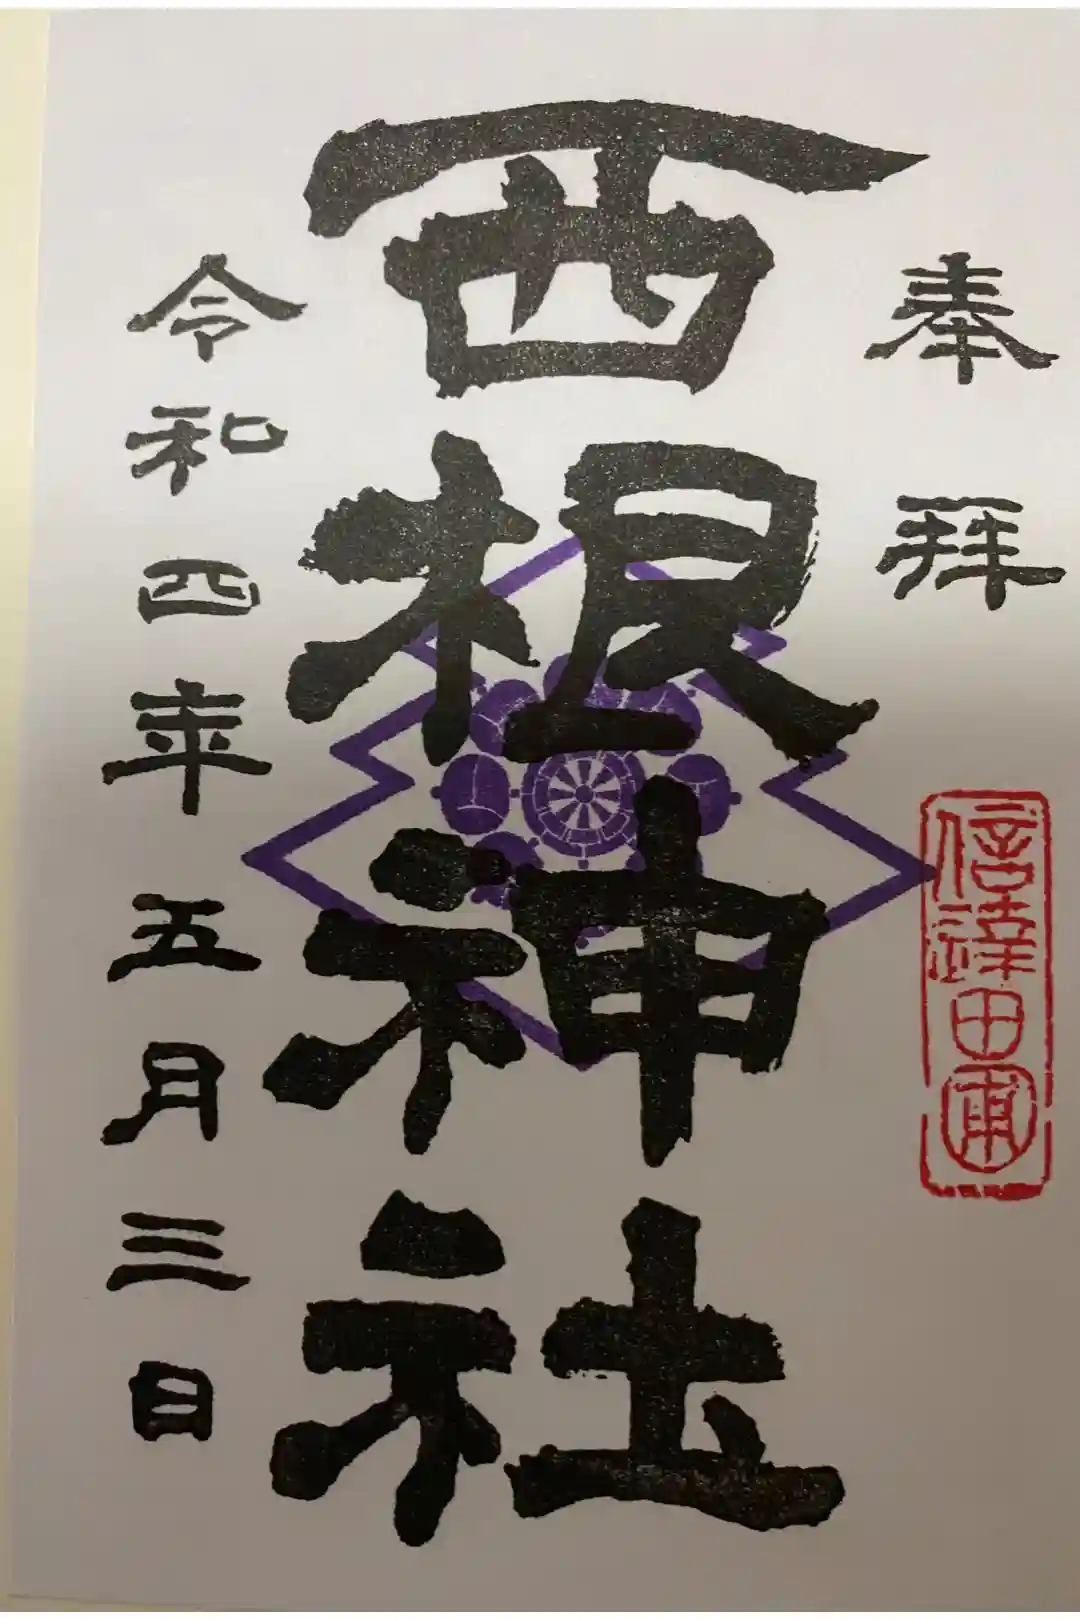 奉拝
信達田圃
西根神社
令和四年五月三日